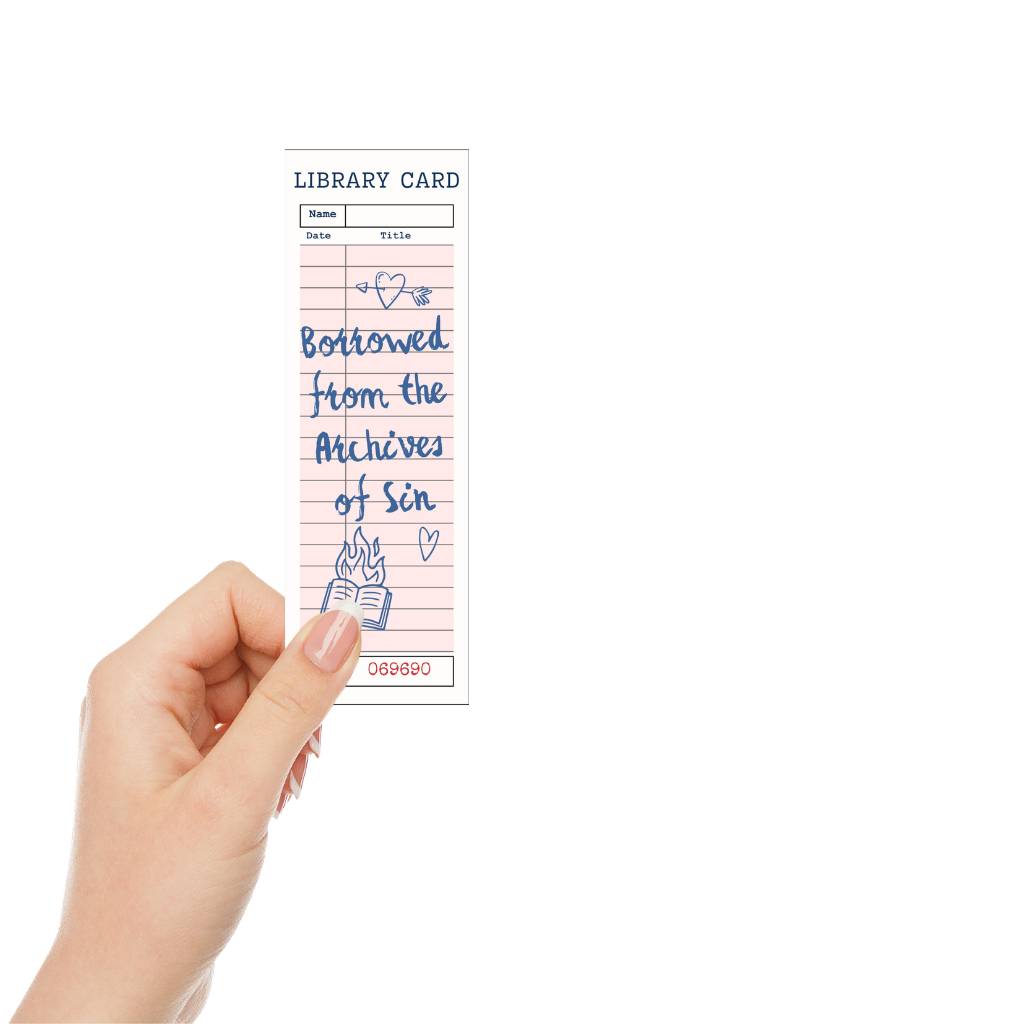 LIBRARY CARD
Name
Date Title
Borrowed
from the
Archives
of Sin
069690